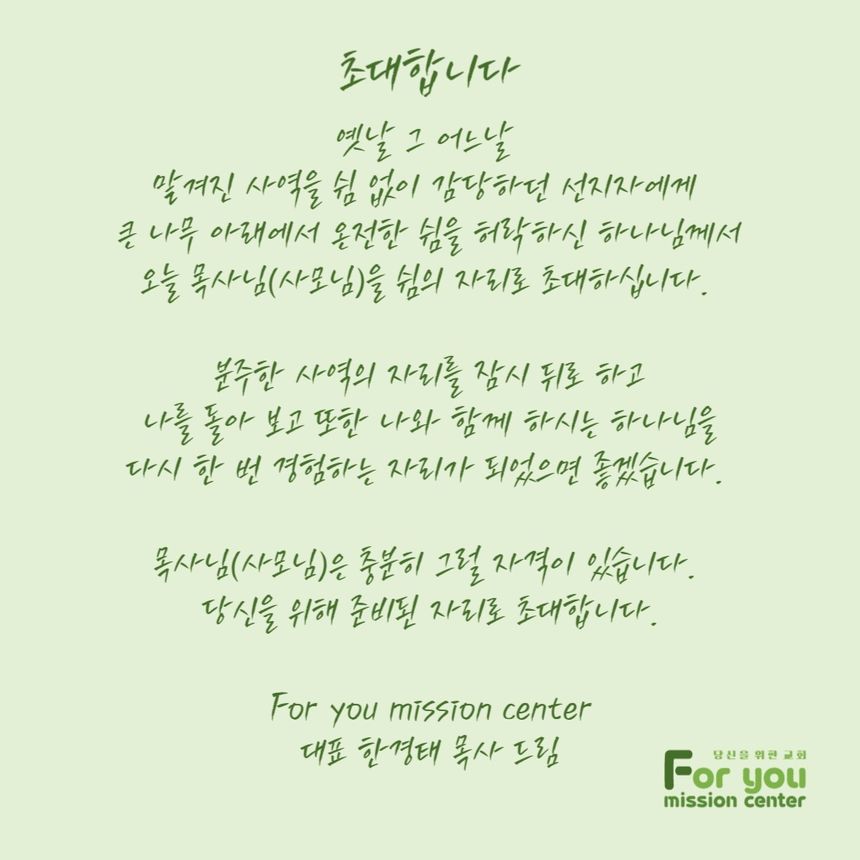 초대합니다
옛날 그 어느날
맡겨진 사역을 쉼 없이 감당하던 선지자에게
큰 나무 아래에서 온전한 쉼을 허락하신 하나님께서
오늘 목사님(사모님)을 쉼의 자리로 초대하십니다.
분주한 사역의 자리를 잠시 뒤로 하고
나를 돌아 보고 또한 나와 함께 하시는 하나님을
다시 한 번 경험하는 자리가 되었으면 좋겠습니다.
목사님(사모님)은 충분히 그럴 자격이 있습니다.
당신을 위해 준비된 자리로 초대합니다.
For you mission center
대표 한경태 목사 드림
당신을 위한 교회
For you
mission center